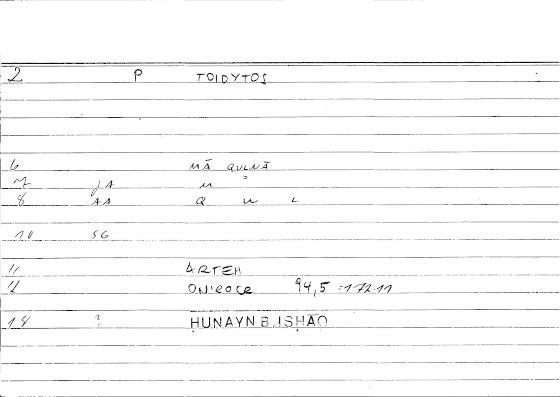 2 P TOIDYTOS
6 MĀ QULNĀ
7 JA M
8 AA Q U L
10 SG
11 ARTEM
12 ONIROCR 94,5 = 172.11
14 ? ḤUNAYN B. ISḤĀQ